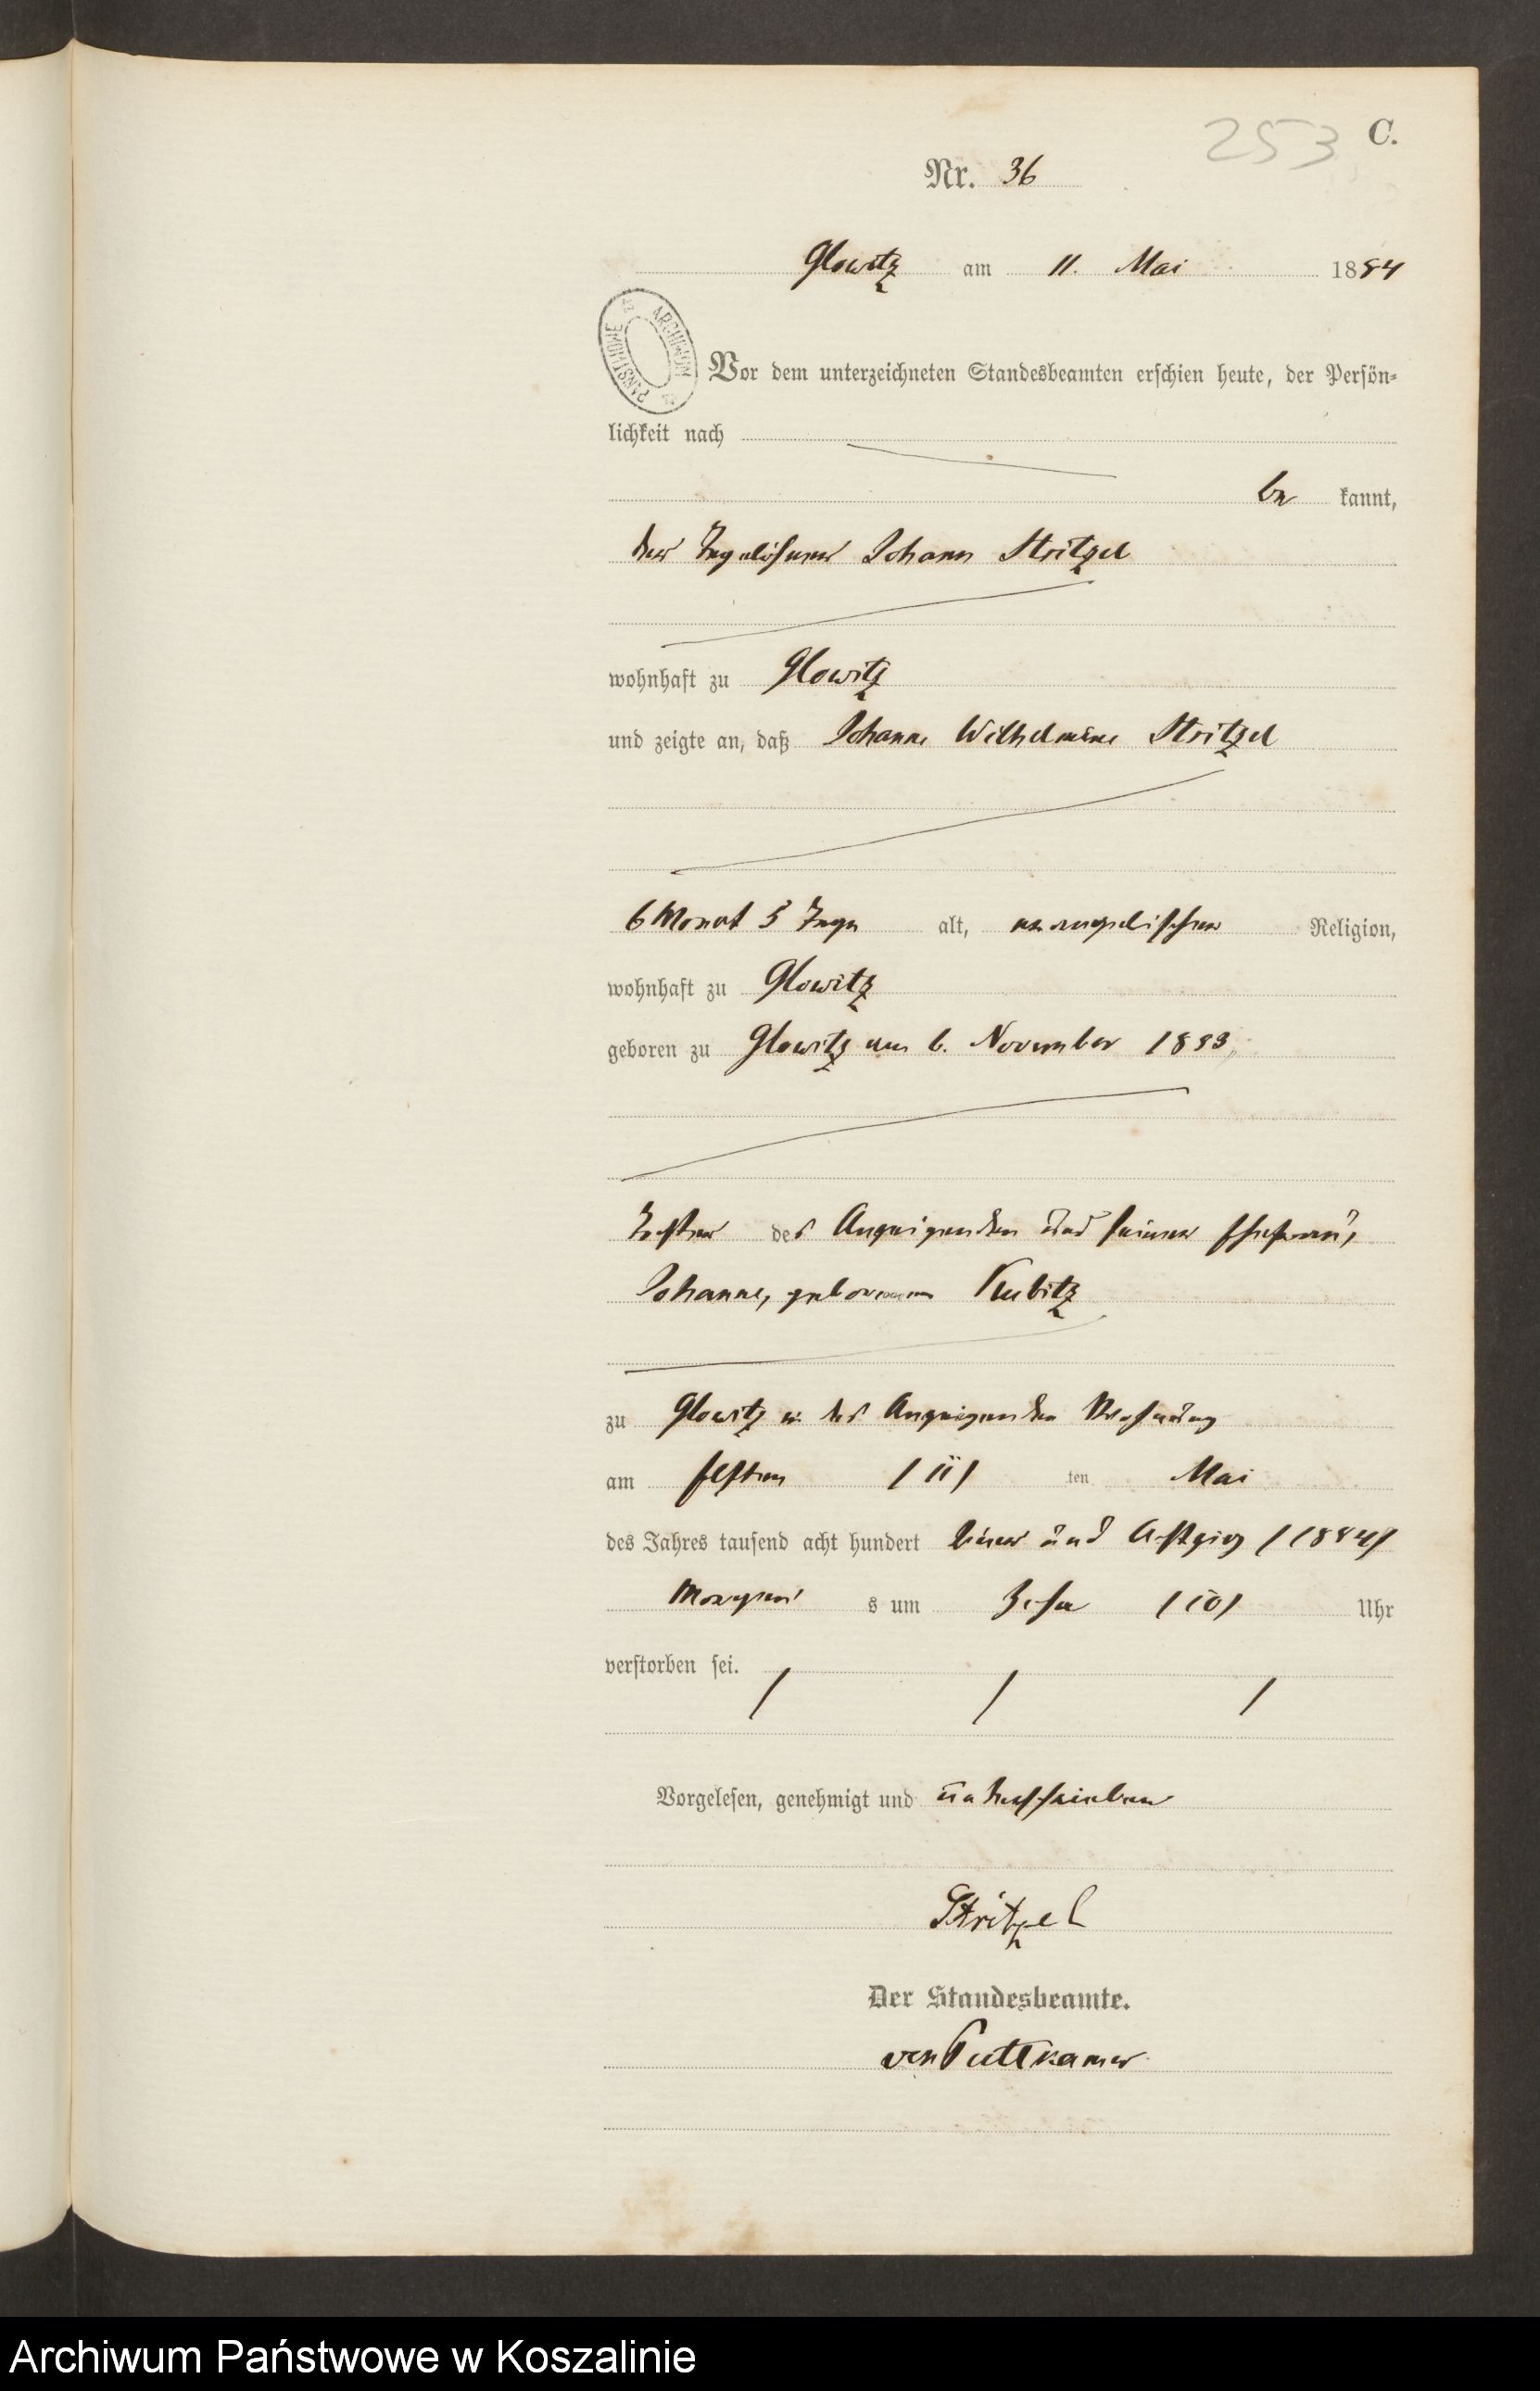 253 C.
Nr. 36
Glowitz am 11. Mai 1884
ARCHIWUM PAŃSTWOWE
Vor dem unterzeichneten Standesbeamten erschien heute, der Persön-
lichkeit nach
be kannt,
der Tagelöhner Johann Stritzel
wohnhaft zu Glowitz
und zeigte an, daß Johanne Wilhelmine Stritzel
6 Monat 5 Tage alt, evangelischer Religion,
wohnhaft zu Glowitz
geboren zu Glowitz am 6. November 1883,
Tochter des Anzeigenden und seiner Ehefrau,
Johanne, geborenen Kubitz
zu Glowitz in des Anzeigenden Wohnung
am elften /11/ ten Mai
des Jahres tausend acht hundert vier und achtzig /1884/
Morgens um Zehn /10/ Uhr
verstorben sei.
Vorgelesen, genehmigt und unterschrieben
Stritzel
Der Standesbeamte.
von Puttkamer
Archiwum Państwowe w Koszalinie